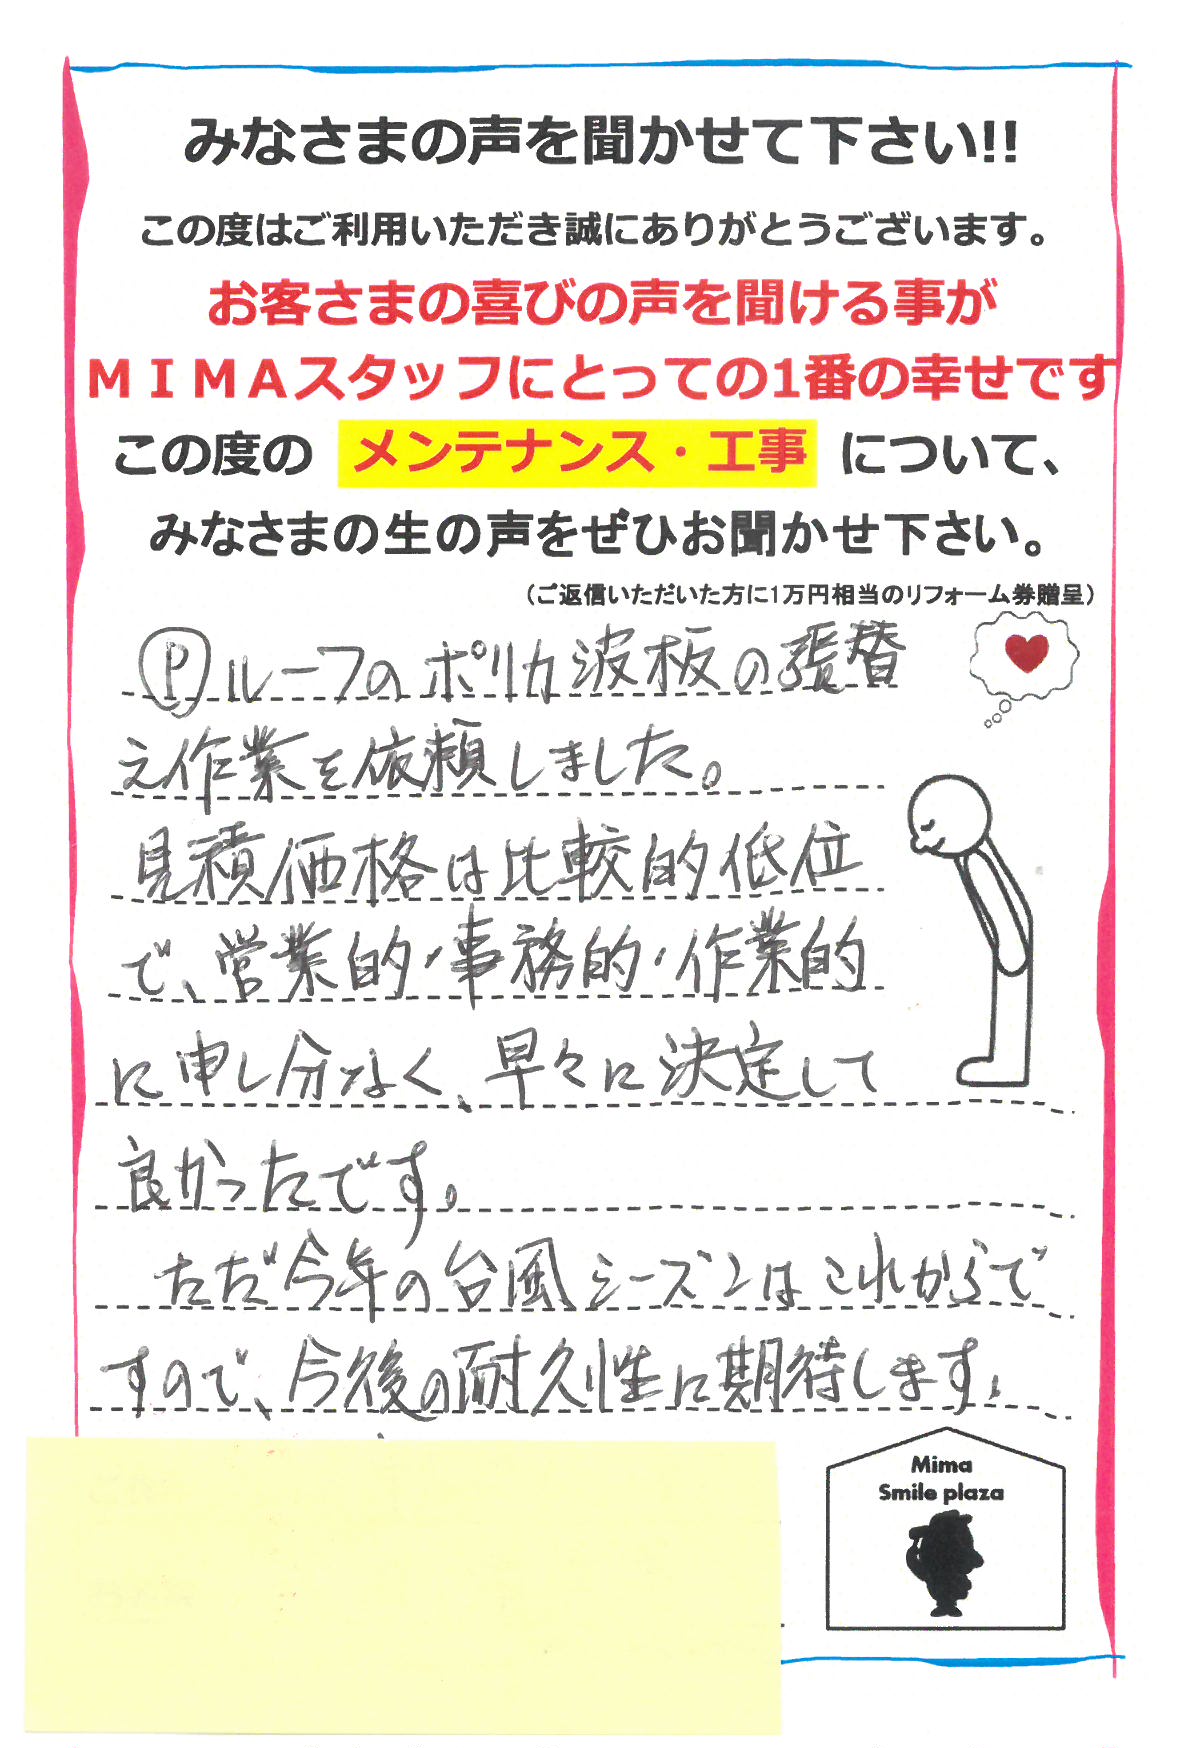 みなさまの声を聞かせて下さい!!
この度はご利用いただき誠にありがとうございます。
お客さまの喜びの声を聞ける事が
ＭＩＭＡスタッフにとっての1番の幸せです
この度の メンテナンス・工事 について、
みなさまの生の声をぜひお聞かせ下さい。
（ご返信いただいた方に1万円相当のリフォーム券贈呈）
Ⓟルーフのポリカ波板の張替
え作業を依頼しました。
見積価格は比較的低位
で、営業的・事務的・作業的
に申し分なく、早々に決定して
良かったです。
ただ今年の台風シーズンはこれからで
すので、今後の耐久性に期待します。
Mima
Smile plaza